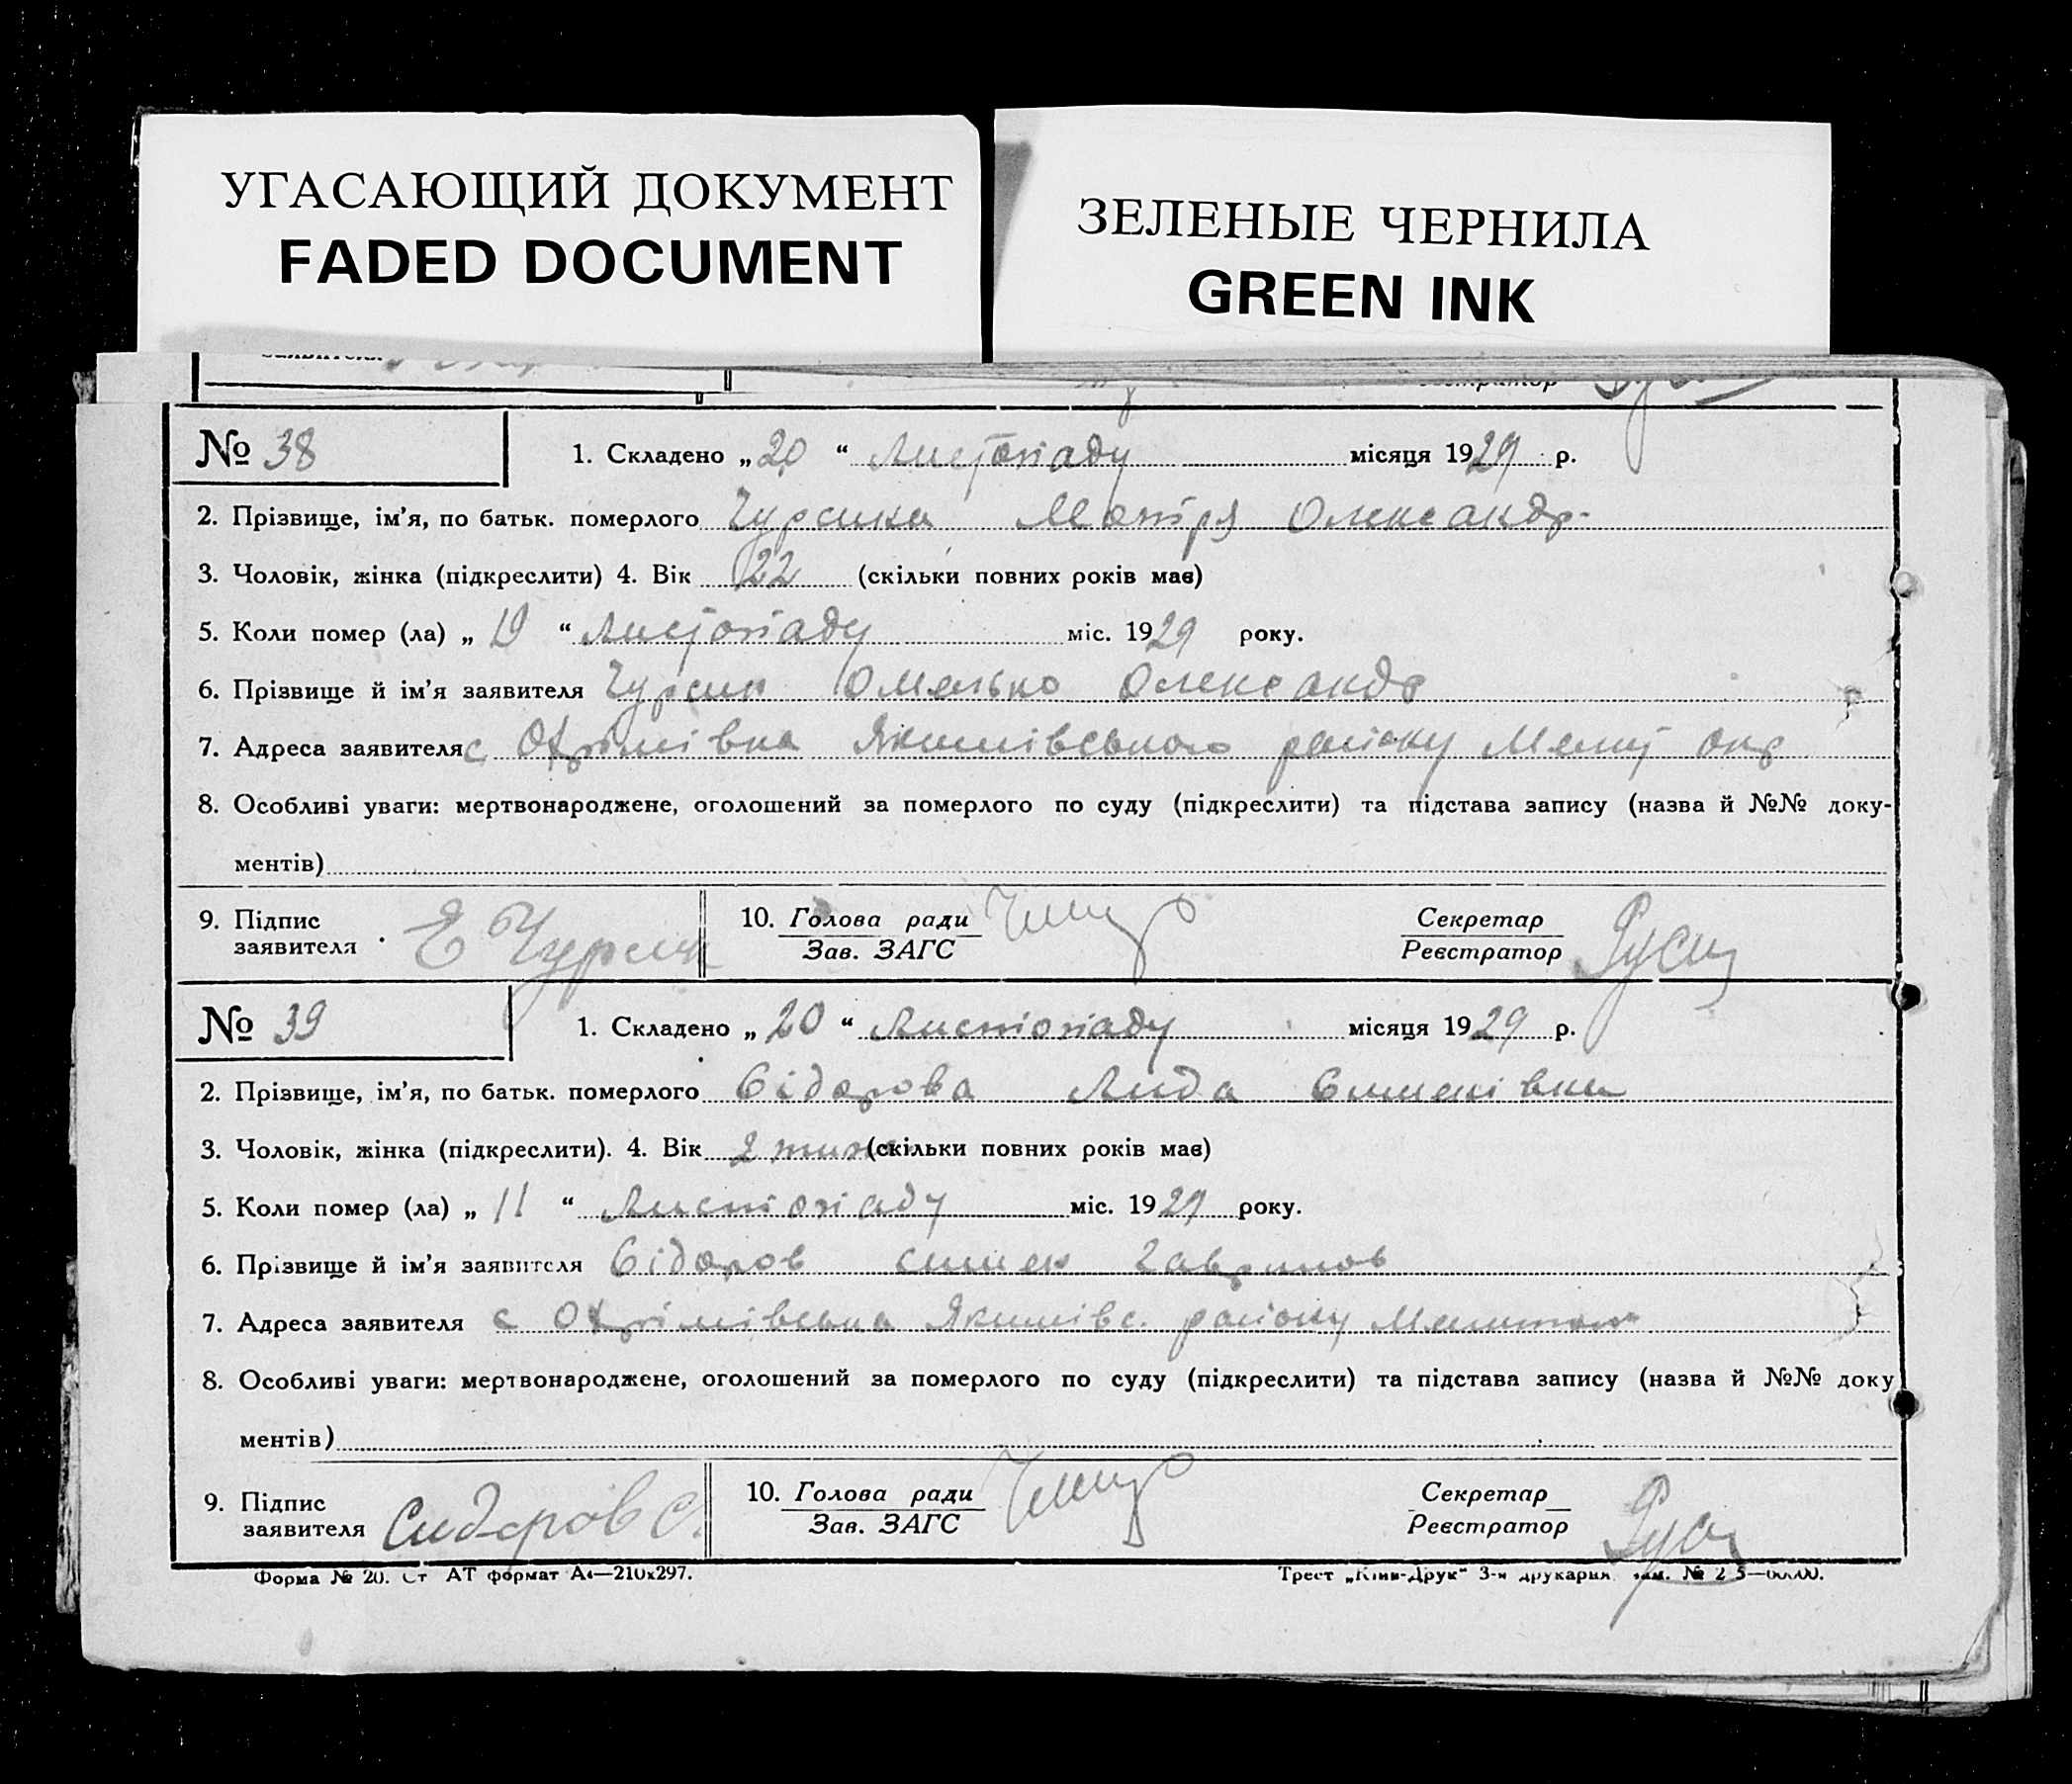 УГАСАЮЩИЙ ДОКУМЕНТ
FADED DOCUMENT
ЗЕЛЕНЫЕ ЧЕРНИЛА
GREEN INK
заявителя
Реєстратор
№ 38
1. Складено „20“ Листопаду місяця 1929 р.
2. Прізвище, ім'я, по батьк. померлого Чурсина Мотря Олександр.
3. Чоловік, жінка (підкреслити) 4. Вік 22 (скільки повних років має)
5. Коли помер (ла) „19“ Листопаду міс. 1929 року.
6. Прізвище й ім'я заявителя Чурсин Омелько Олександр
7. Адреса заявителя с Охрімівка Якимівського району Меліт окр
8. Особливі уваги: мертвонароджене, оголошений за померлого по суду (підкреслити) та підстава запису (назва й №№ доку-
ментів)
9. Підпис заявителя Е Чурсин
10. Голова ради
Зав. ЗАГС
Секретар
Реєстратор
№ 39
1. Складено „20“ Листопаду місяця 1929 р.
2. Прізвище, ім'я, по батьк. померлого Сідорова Лида
3. Чоловік, жінка (підкреслити). 4. Вік 2 тиж. (скільки повних років має)
5. Коли помер (ла) „11“ Листопаду міс. 1929 року.
6. Прізвище й ім'я заявителя Сідоров
7. Адреса заявителя с Охрімівська Якимівс. району
8. Особливі уваги: мертвонароджене, оголошений за померлого по суду (підкреслити) та підстава запису (назва й №№ доку
ментів)
9. Підпис заявителя Сидоров С.
10. Голова ради
Зав. ЗАГС
Секретар
Реєстратор
Форма № 20. Ст АТ формат А4—210x297.
Трест „Київ-Друк“ 3-я друкарня